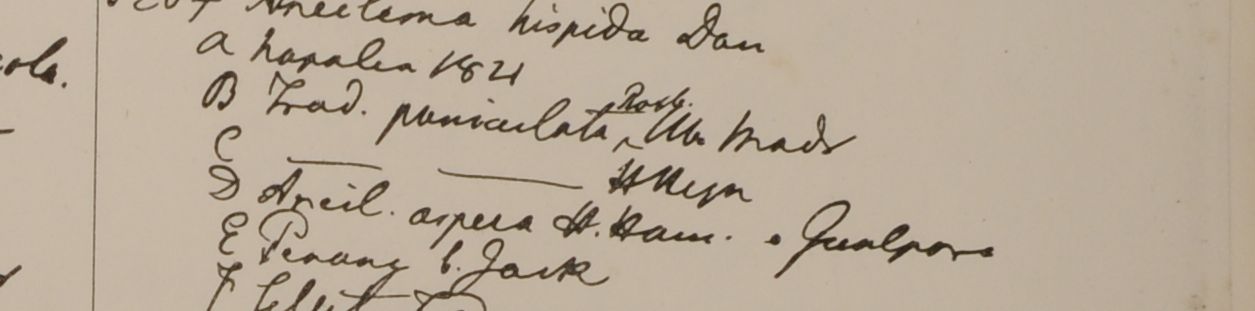 Aneilema hispida Don
a Napalia 1821
B Trad. paniculata Roxb. Hb. Madr
C — — H Heyn
D Aneil. aspera H. Ham. e Gualpara
E Penang G. Jack
F